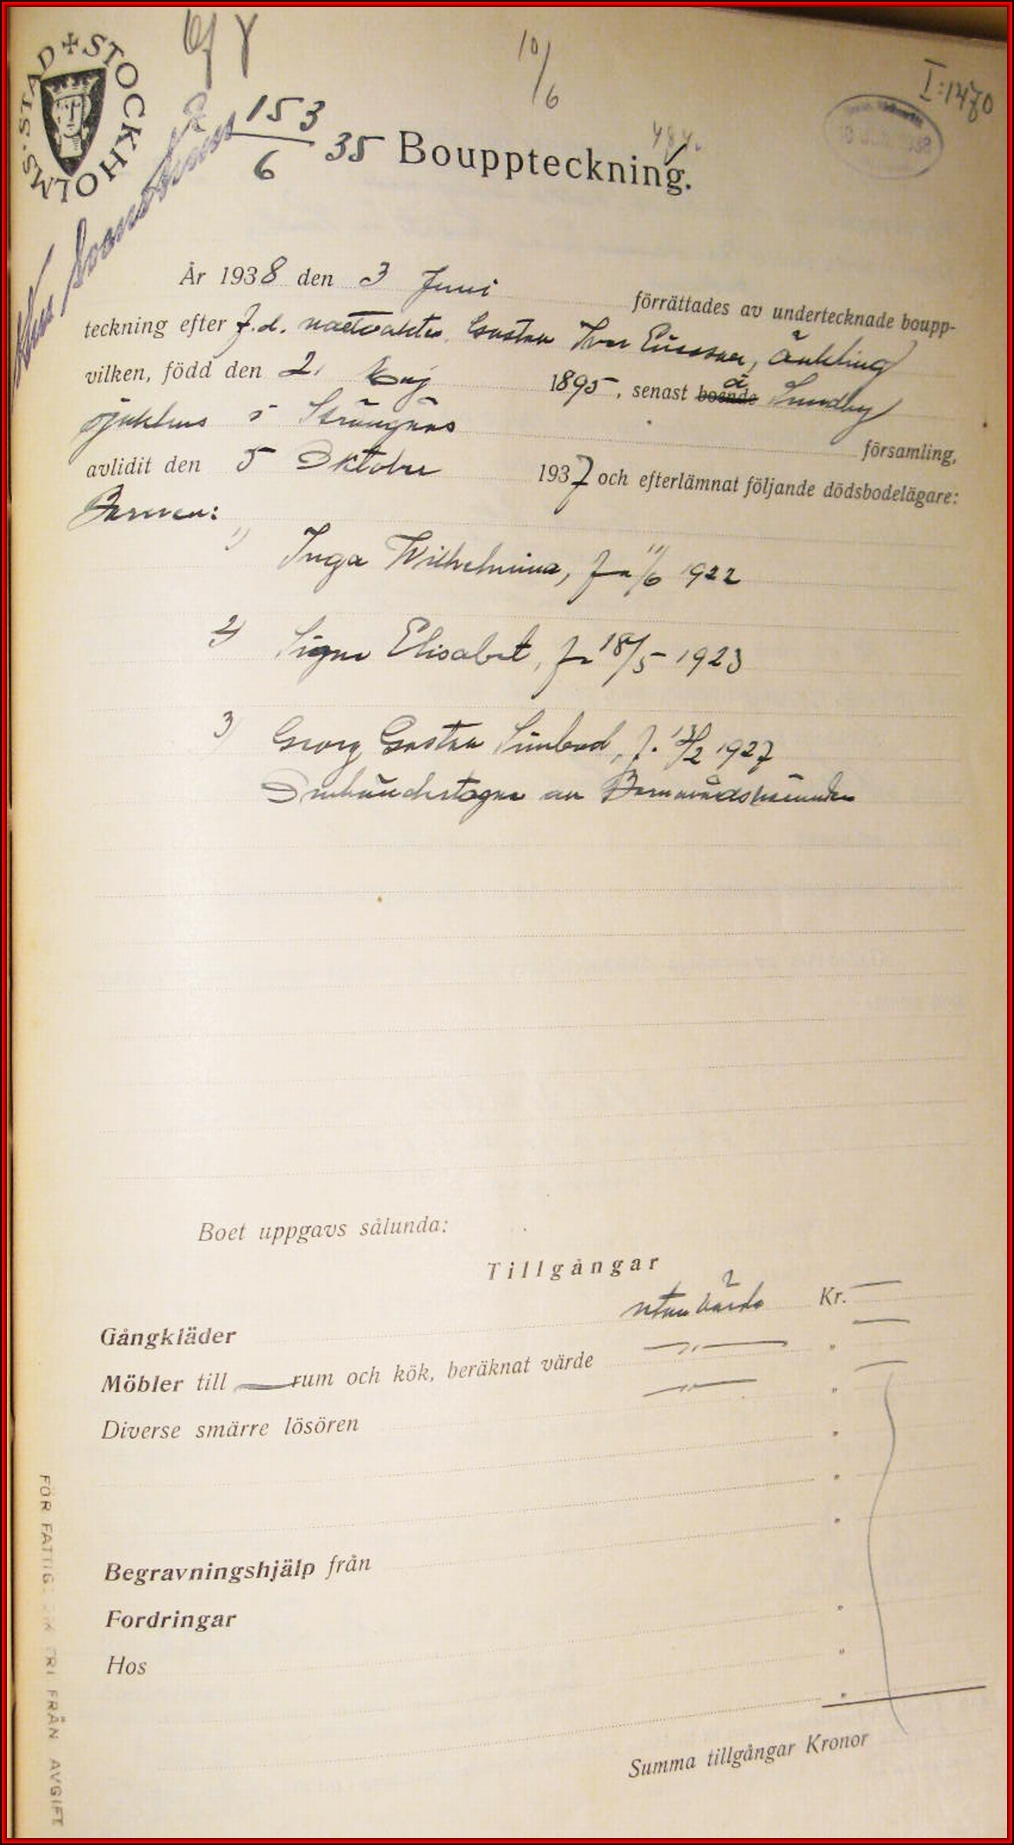 STOCKHOLMS·STAD
10/6
I:1470
153
6
35 Bouppteckning.
År 1938 den 3 Juni förrättades av undertecknade boupp-
teckning efter f.d. Gustav Ivar Ericsson, änkling
vilken, född den 2. Maj 1895, senast boende å Sundby
sjukhus i Strängnäs församling,
avlidit den 5 Oktober 1937 och efterlämnat följande dödsbodelägare:
Barnen:
1) Inga Wilhelmina, f. 11/6 1922
2) Signe Elisabet, f. 18/5 1923
3) Georg Gustav f. 13/2 1927
Omhändertagna av Barnavårdsnämnden
Boet uppgavs sålunda:
Tillgångar
Gångkläder utan värde Kr. —
Möbler till — rum och kök, beräknat värde —"— " —
Diverse smärre lösören —"— " —
"
"
"
Begravningshjälp från
Fordringar "
Hos "
"
Summa tillgångar Kronor
FÖR FATTIG FRI FRÅN AVGIFT